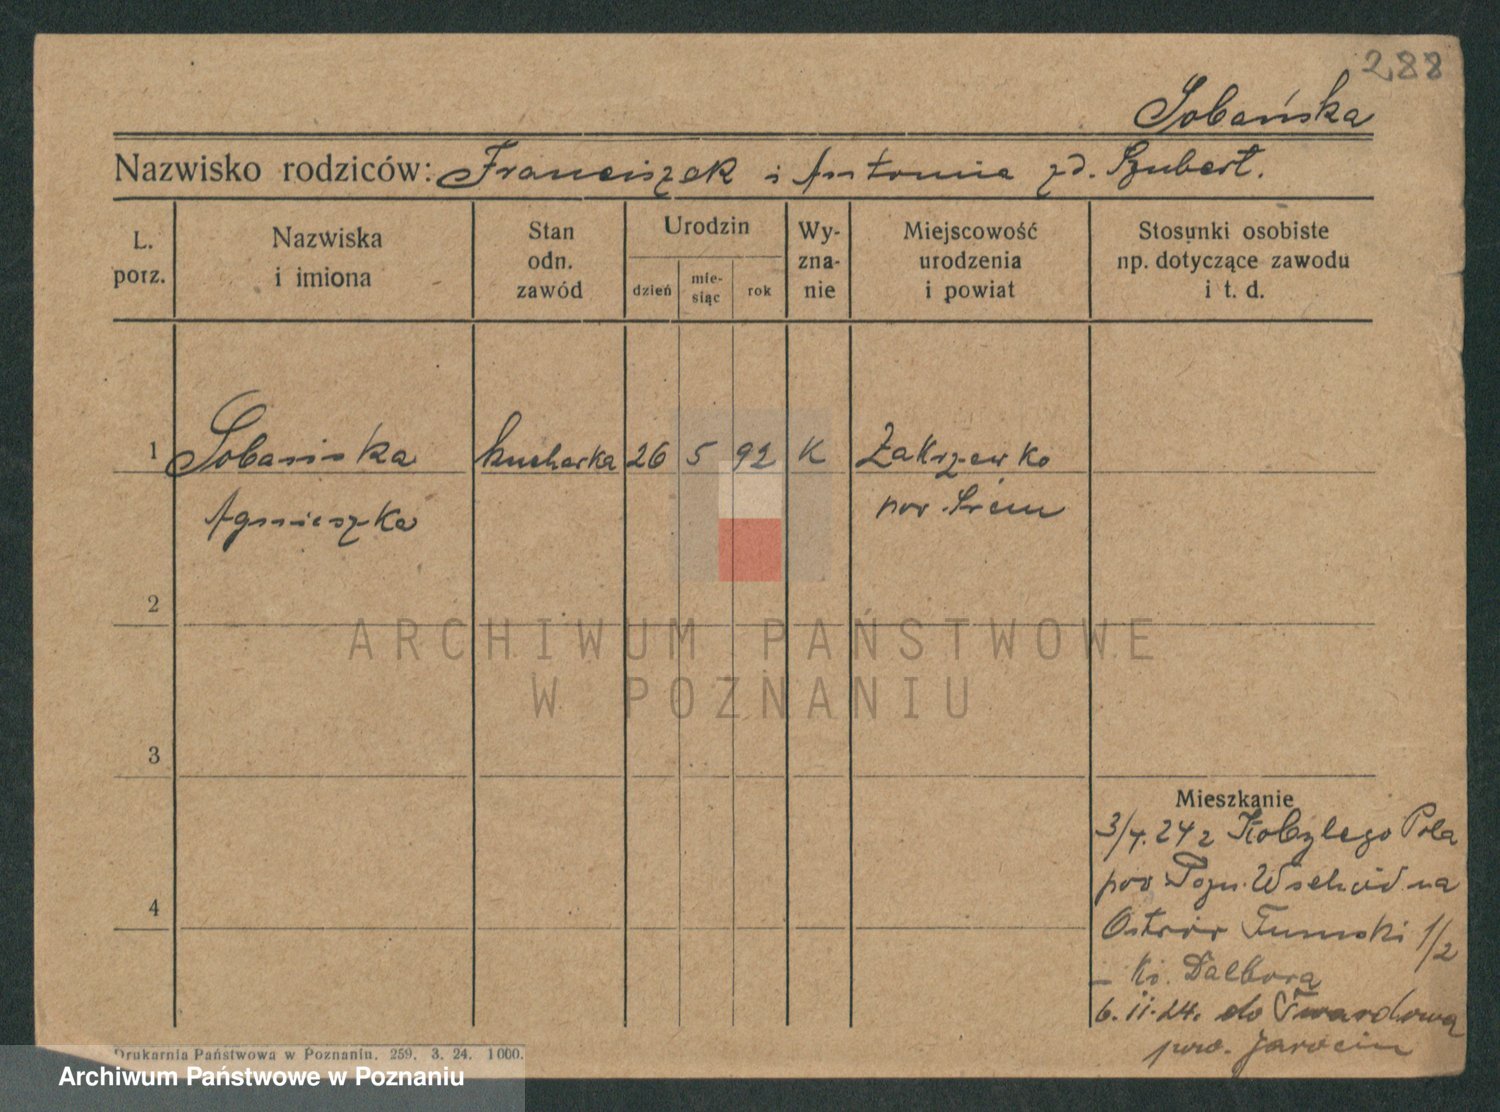 288
Sobańska
Nazwisko rodziców: Franciszek i Antonina zd. Szubert.
L. porz.
Nazwiska i imiona
Stan odn. zawód
Urodzin
dzień
mie-siąc
rok
Wy-zna-nie
Miejscowość urodzenia i powiat
Stosunki osobiste np. dotyczące zawodu i t. d.
1 Sobańska kucharka 26 5 92 K Zakrzewko
Agnieszka pow. Śrem
2
3
4
ARCHIWUM PAŃSTWOWE
W POZNANIU
Mieszkanie
3/4.24 z Kobylego Pola
pow. Pozn. Wschód na
Ostrów Tumski 1/2
– Ks. Dalborą
6.11.24. do Twardowa
pow. Jarocin
Drukarnia Państwowa w Poznaniu. 259. 3. 24. 1000.
Archiwum Państwowe w Poznaniu